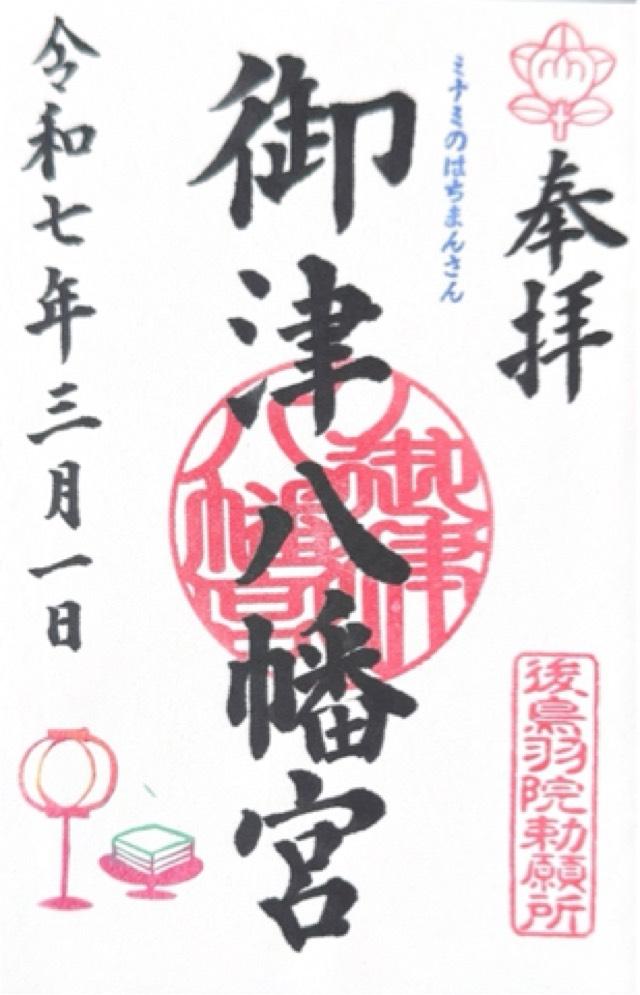 奉拝
ミナミのはちまんさん
御津八幡宮
御津
八幡宮
後鳥羽院勅願所
令和七年三月一日